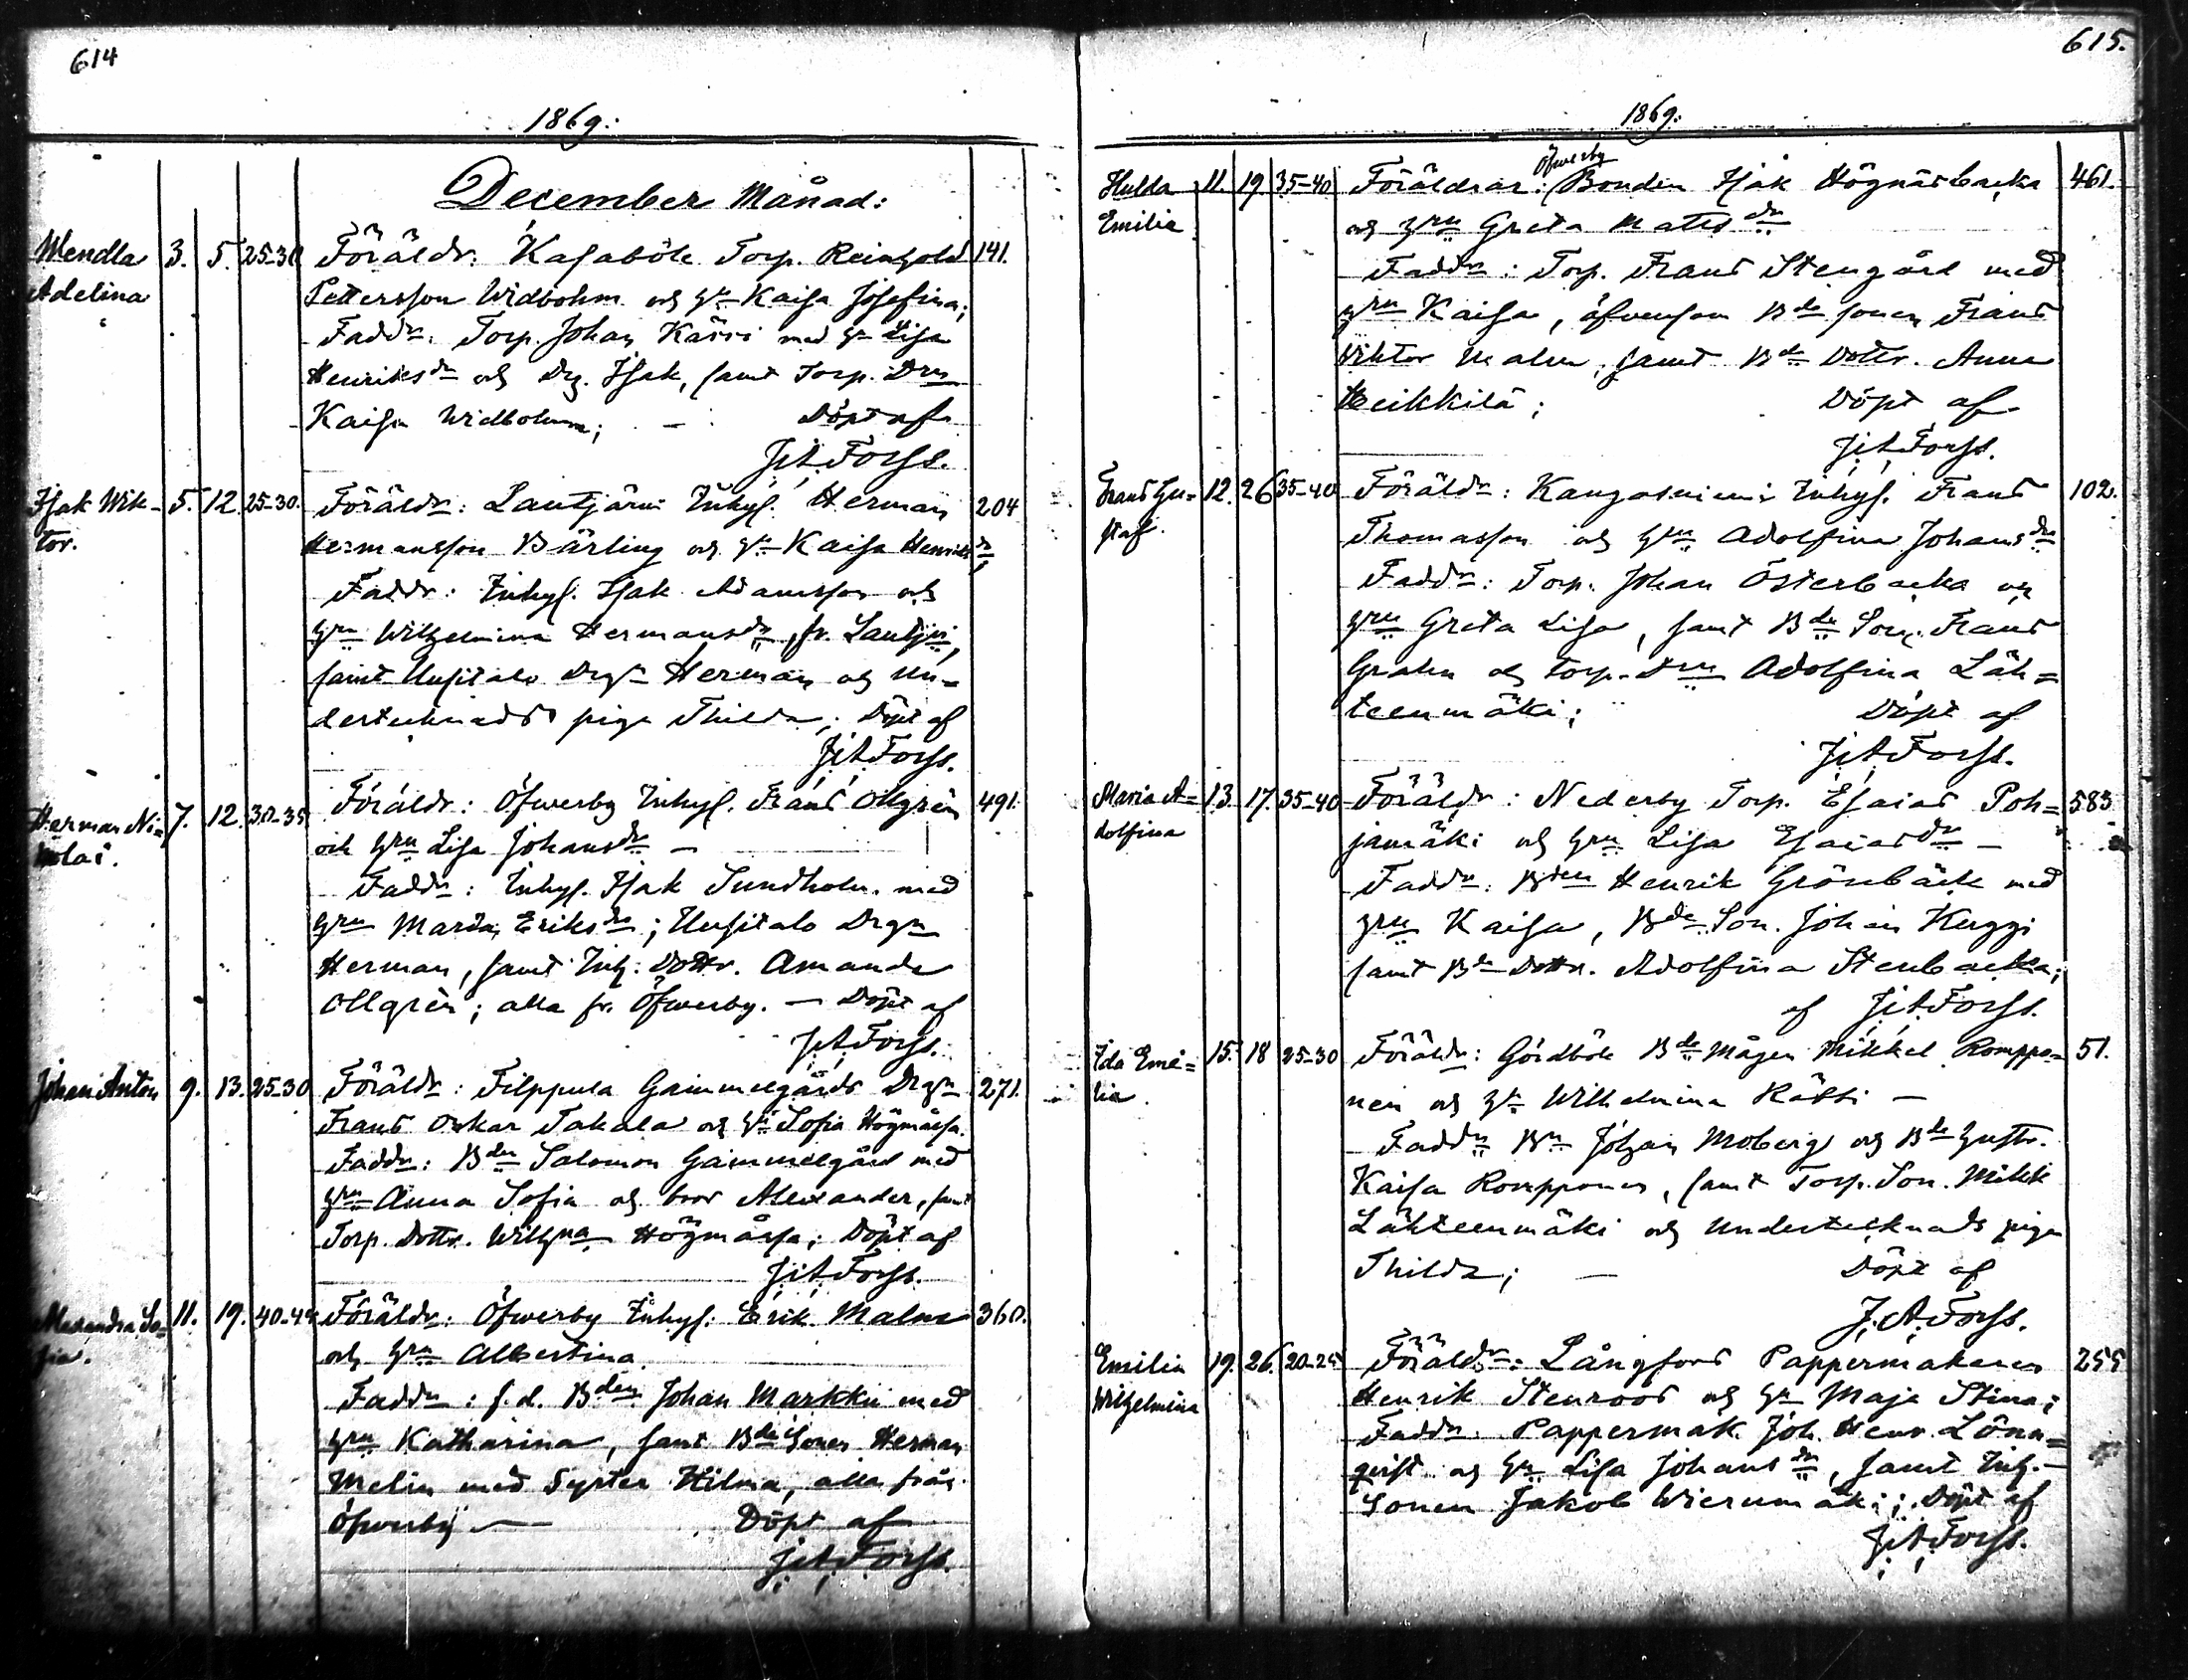 614
1869:
December Månad:
Wendla 3. 5. 25-30 Föräldr: Kasaböle Torp. Reinhold 141.
Adelina Pettersson Widbohm och H:u Kaisa Josefina;
Faddr: Torp. Johan Kärri med H:u Lisa
Henriksdr och Drg. Isak, samt Torp. Drn
Kaisa Widbohm; — Döpt af
J. A. Forss.
Isak Wik- 5. 12. 25-30. Föräldr: Lautjärvi Inhys. Herman 204
tor. Hermansson Bärling och H:u Kaisa Henriksdr;
Faddr: Inhys. Isak Adamsson och
Hru Wilhelmina Hermansdr, fr. Lautjvi,
samt Uusitalo Drgn Herman och Un=
dertecknads piga Thilda; Döpt af
J. A. Forss.
Herman Ni= 7. 12. 30-35 Föräldr: Öfwerby Inhys. Frans Ollgrén 491.
kolai. och Hru Lisa Johansdr —
Faddr: Inhys. Isak Sundholm med
Hru Maria Eriksdr; Uusitalo Drgn
Herman, samt Inh: Dottr. Amanda
Ollgrén; alla fr. Öfwerby. — Döpt af
J. A. Forss.
Johan Anton 9. 13. 25-30 Föräldr: Filppula Gammelgårds Drgn 271.
Frans Oskar Takala och H:u Sofia Högmåssa.
Faddr: Bden Salomon Gammelgård med
Hru Anna Sofia och bror Alexander, samt
Torp. Dottr. Wilhna Högmåssa; Döpt af
J. A. Forss.
Alexandra So= 11. 19. 40-45 Föräldr: Öfwerby Inhys: Erik Malm 360.
fia. och Hru Albertina.
Faddr: f.d. Bden Johan Markkü med
Hru Katharina, samt Bde Sonen Herman
Melin med Syster Hilma, alla från
Öfwerby — Döpt af
J. A. Forss.
615.
1869:
Öfwerby
Hulda 11. 19. 35-40 Föräldrar: Bonden Isak Högnäsbacka 461.
Emilia och Hru Greta Mattsdr
Faddr: Torp. Frans Stengård med
Hru Kaisa, äfvensom Bde sonen Frans
Viktor Malm, samt Bde Dottr. Anna
Heikkilä; Döpt af
J. A. Forss.
Frans Gu= 12. 26 35-40 Föräldr: Kangasniemi Inhys. Frans 102.
staf. Thomasson och Hru Adolfina Johansdr
Faddr: Torp. Johan Österbacka och
Hru Greta Lisa, samt Bde Son. Frans
Grahn och Torp. Drn Adolfina Läh=
teenmäki; Döpt af
J. A. Forss.
Maria A= 13. 17. 35-40 Föräldr: Nederby Torp. Esaias Poh= 583
dolfina jamäki och Hru Lisa Esaiasdr —
Faddr: Bden Henrik Grönbäck med
Hru Kaisa, Bde Son. Johan Kuggi
samt Bde Dottr. Adolfina Stenbacka;
af J. A. Forss.
Ida Emi= 15. 18 25-30 Föräldr: Gördböle Bde mågen Mikkel Romppa= 51.
lia. nen och H:u Wilhelmina Rätti —
Faddr Bn Johan Moberg och Bde hustr.
Kaisa Romppanen, samt Torp. Son. Mikk
Lähteenmäki och Undertecknads piga
Thilda; — Döpt af
J. A. Forss.
Emilia 19. 26. 20-25 Föräldr: Långfors Pappermakaren 255
Wilhelmina Henrik Stenroos och H:u Maja Stina;
Faddr. Pappermak. Joh. Henr. Lönn=
qvist och H:u Lisa Johansdr, samt Inh.
Sonen Jakob Wierumäki; Döpt af
J. A. Forss.